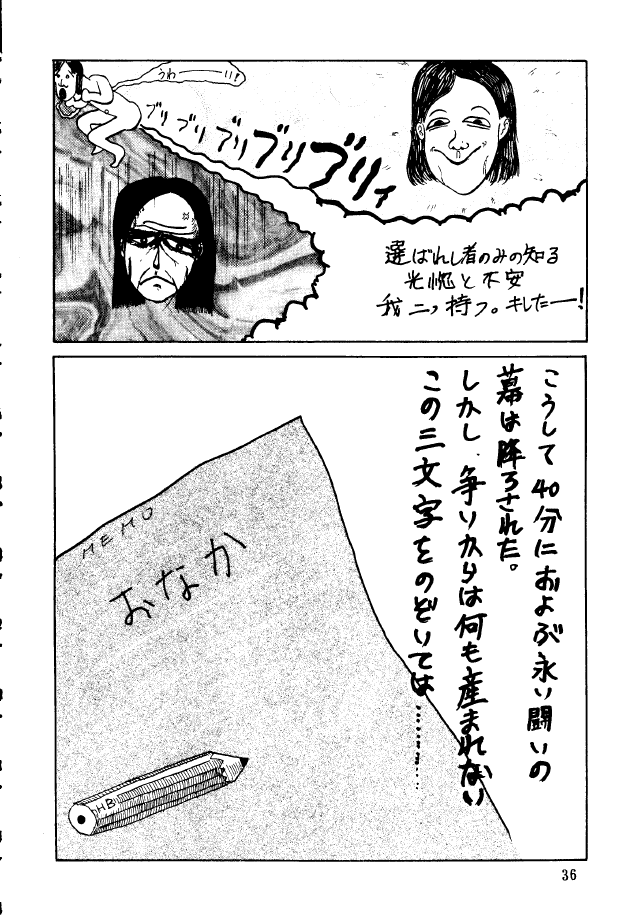 うわーーーい!
ブリブリブリブリブリィ
選ばれし者のみの知る
光惚と不安
我二ッ持つ。キレたー!
こうして40分におよぶ永い闘いの
幕は降ろされた。
しかし、争いからは何も産まれない
この三文字をのぞいては………
MEMO
おなか
HB
36